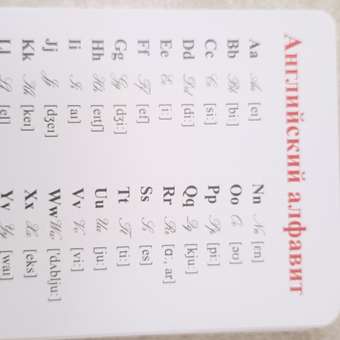 Английский алфавит
Aa Aa [eɪ] Nn Nn [ɛn]
Bb Bb [bi:] Oo Oo [əʊ]
Cc Cc [si:] Pp Pp [pi:]
Dd Dd [di:] Qq Qq [kju:]
Ee Ee [i:] Rr Rr [ɑ:, ar]
Ff Ff [ef] Ss Ss [es]
Gg Gg [dʒi:] Tt Tt [ti:]
Hh Hh [eɪtʃ] Uu Uu [ju:]
Ii Ii [aɪ] Vv Vv [vi:]
Jj Jj [dʒeɪ] Ww Ww ['dʌblju:]
Kk Kk [keɪ] Xx Xx [eks]
Ll Ll [el] Yy Yy [waɪ]